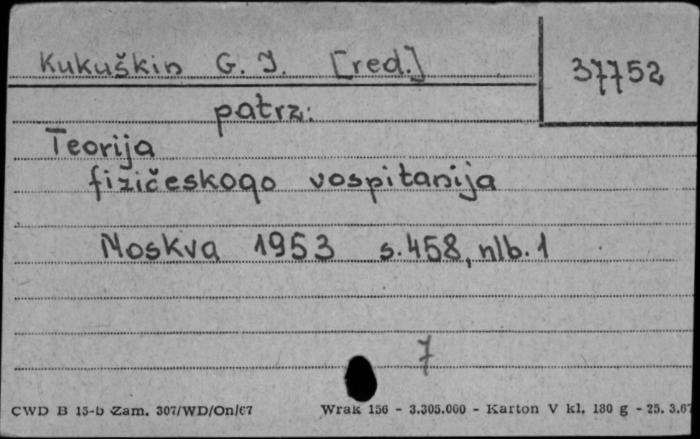 Kukuškin G. I. [red.]
37752
patrz:
Teorija
fizičeskogo vospitanija
Moskva 1953 s. 458, nlb. 1
7
CWD B 15-b Zam. 307/WD/On/67 Wrak 156 - 3.305.000 - Karton V kl. 180 g - 25. 3.67